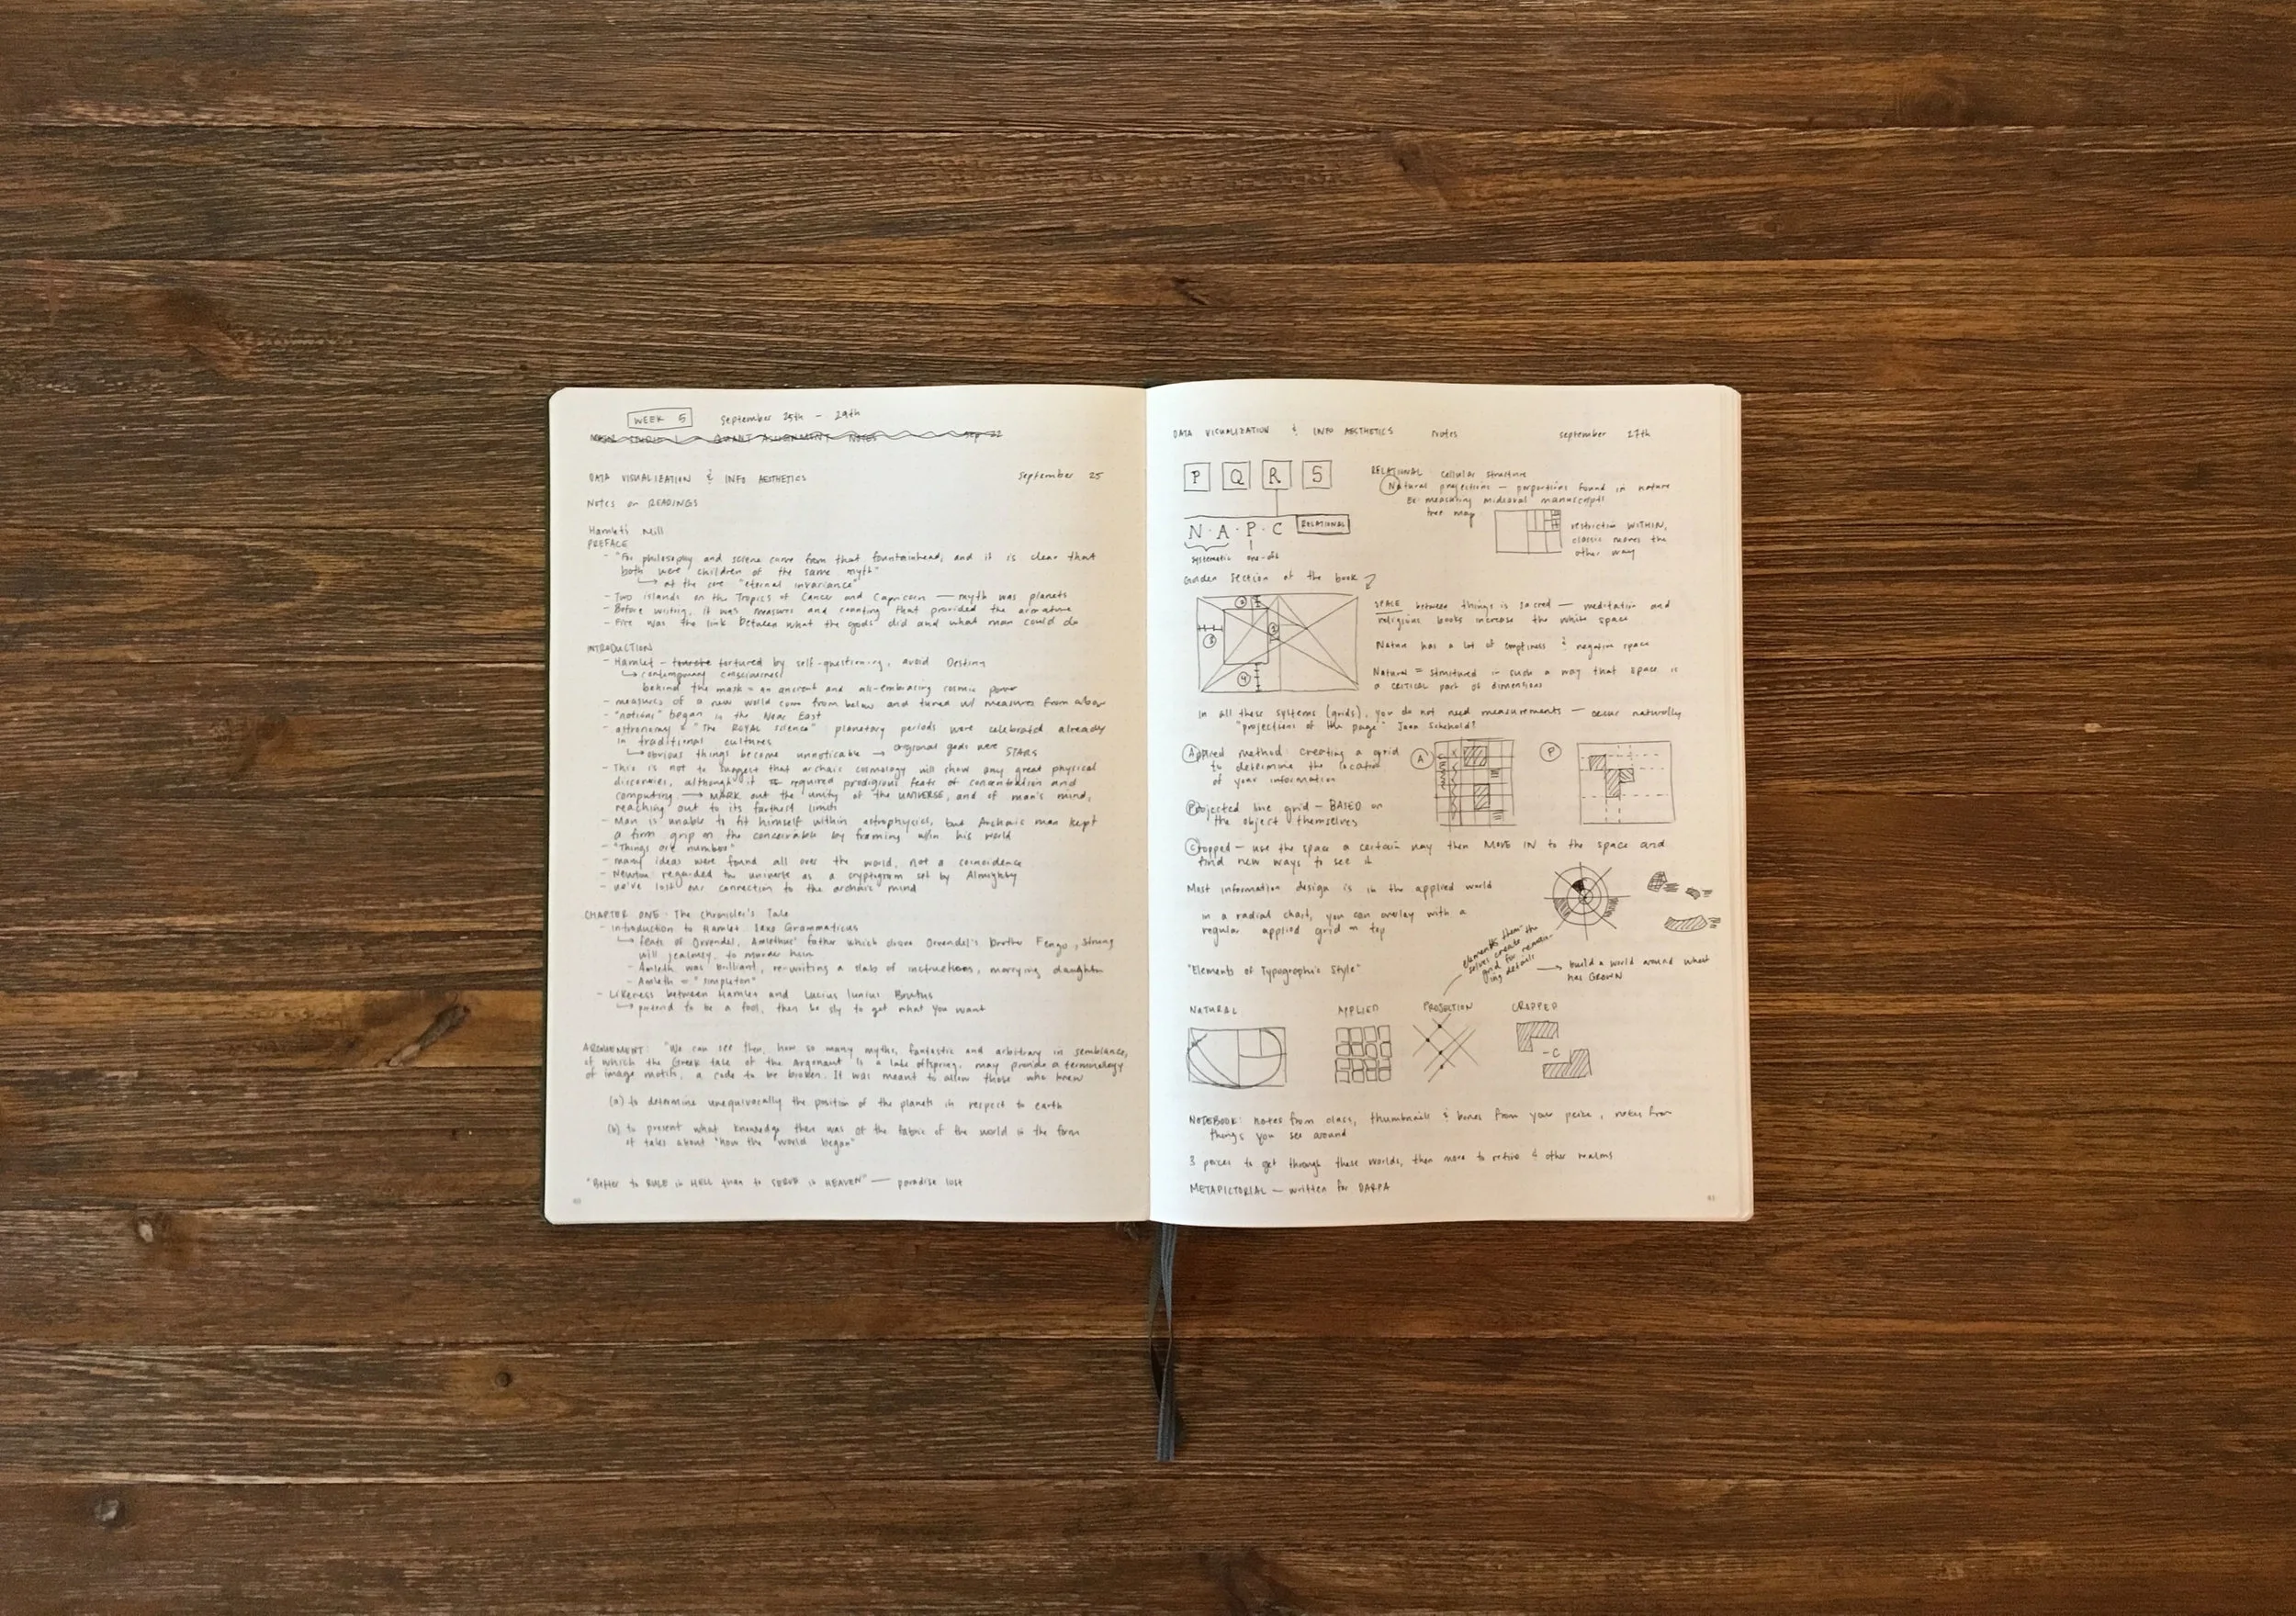 WEEK 5 September 25th - 29th
DATA VISUALIZATION & INFO AESTHETICS September 25
NOTES on READINGS
Hamlet's Mill
PREFACE
- "For philosophy and science came from that fountainhead, and it is clear that
both were children of the same myth"
↳ at the core "eternal invariance"
- Two islands on the Tropics of Cancer and Capricorn — myth was planets
- Before writing, it was measures and counting that provided the armature
- Fire was the link between what the gods did and what man could do
INTRODUCTION
- Hamlet - tortured by self-questioning, avoid Destiny
↳ contemporary consciousness
behind the mask = an ancient and all-embracing cosmic power
- measures of a new world come from below and tuned w/ measures from above
- "notions" began in the Near East
- astronomy = "The ROYAL science" planetary periods were celebrated already
in traditional cultures
↳ obvious things become unnoticable → original gods were STARS
- This is not to suggest that archaic cosmology will show any great physical
discoveries, although it required prodigious feats of concentration and
computing → MARK out the unity of the UNIVERSE, and of man's mind,
reaching out to its farthest limits
- Man is unable to fit himself within astrophysics, but Archaic man kept
a firm grip on the conceivable by framing w/in his world
- "Things are number"
- many ideas were found all over the world, not a coincidence
- Newton regarded the universe as a cryptogram set by Almighty
- we've lost our connection to the archaic mind
CHAPTER ONE: The Chronicler's Tale
- Introduction to Hamlet: Saxo Grammaticus
↳ feats of Orvendel, Amlethus' father which drove Orvendel's brother Fengo, strung
will jealousy, to murder him
- Amleth was brilliant, re-writing a slab of instructions, marrying daughter
- Amleth = "simpleton"
- Likeness between Hamlet and Lucius Iunius Brutus
↳ pretend to be a fool, then be sly to get what you want
ARGUEMENT: "We can see then, how so many myths, fantastic and arbitrary in semblance,
of which the Greek tale of the Argonaut is a late offspring, may provide a terminology
of image motifs, a code to be broken. It was meant to allow those who knew
(a) to determine unequivocally the position of the planets in respect to earth
(b) to present what knowledge there was of the fabric of the world in the form
of tales about "how the world began"
"Better to RULE in HELL than to SERVE in HEAVEN" — paradise lost
DATA VISUALIZATION & INFO AESTHETICS notes september 27th
P Q R S
N · A · P · C RELATIONAL
systematic one-offs
RELATIONAL cellular structure
Natural projections — proportions found in nature
Ex: measuring mideaval manuscripts
tree map
restriction WITHIN,
classic moves the
other way
Golden section of the book
2
1
3
4
SPACE between things is sacred — meditation and
religious books increase the white space
Nature has a lot of emptiness & negative space
Natural = structured in such a way that space is
a CRITICAL part of dimensions
in all these systems (grids), you do not need measurements — occur naturally
"projections of the page"
Applied method: creating a grid
to determine the location
of your information
A
P
Projected line grid — BASED on
the object themselves
Cropped — use the space a certain way then MOVE IN to the space and
find new ways to see it
Most information design is in the applied world
in a radial chart, you can overlay with a
regular applied grid on top
elements them-
selves create the
grid for remain-
ing details
→ build a world around what
has GROWN
"Elements of Typographic Style"
NATURAL APPLIED PROJECTION CROPPED
-C
NOTEBOOK: notes from class, thumbnails & bones from your peice, notes from
things you see around
3 peices to get through these worlds, then move to 4 other realms
METAPICTORIAL — written for DARPA